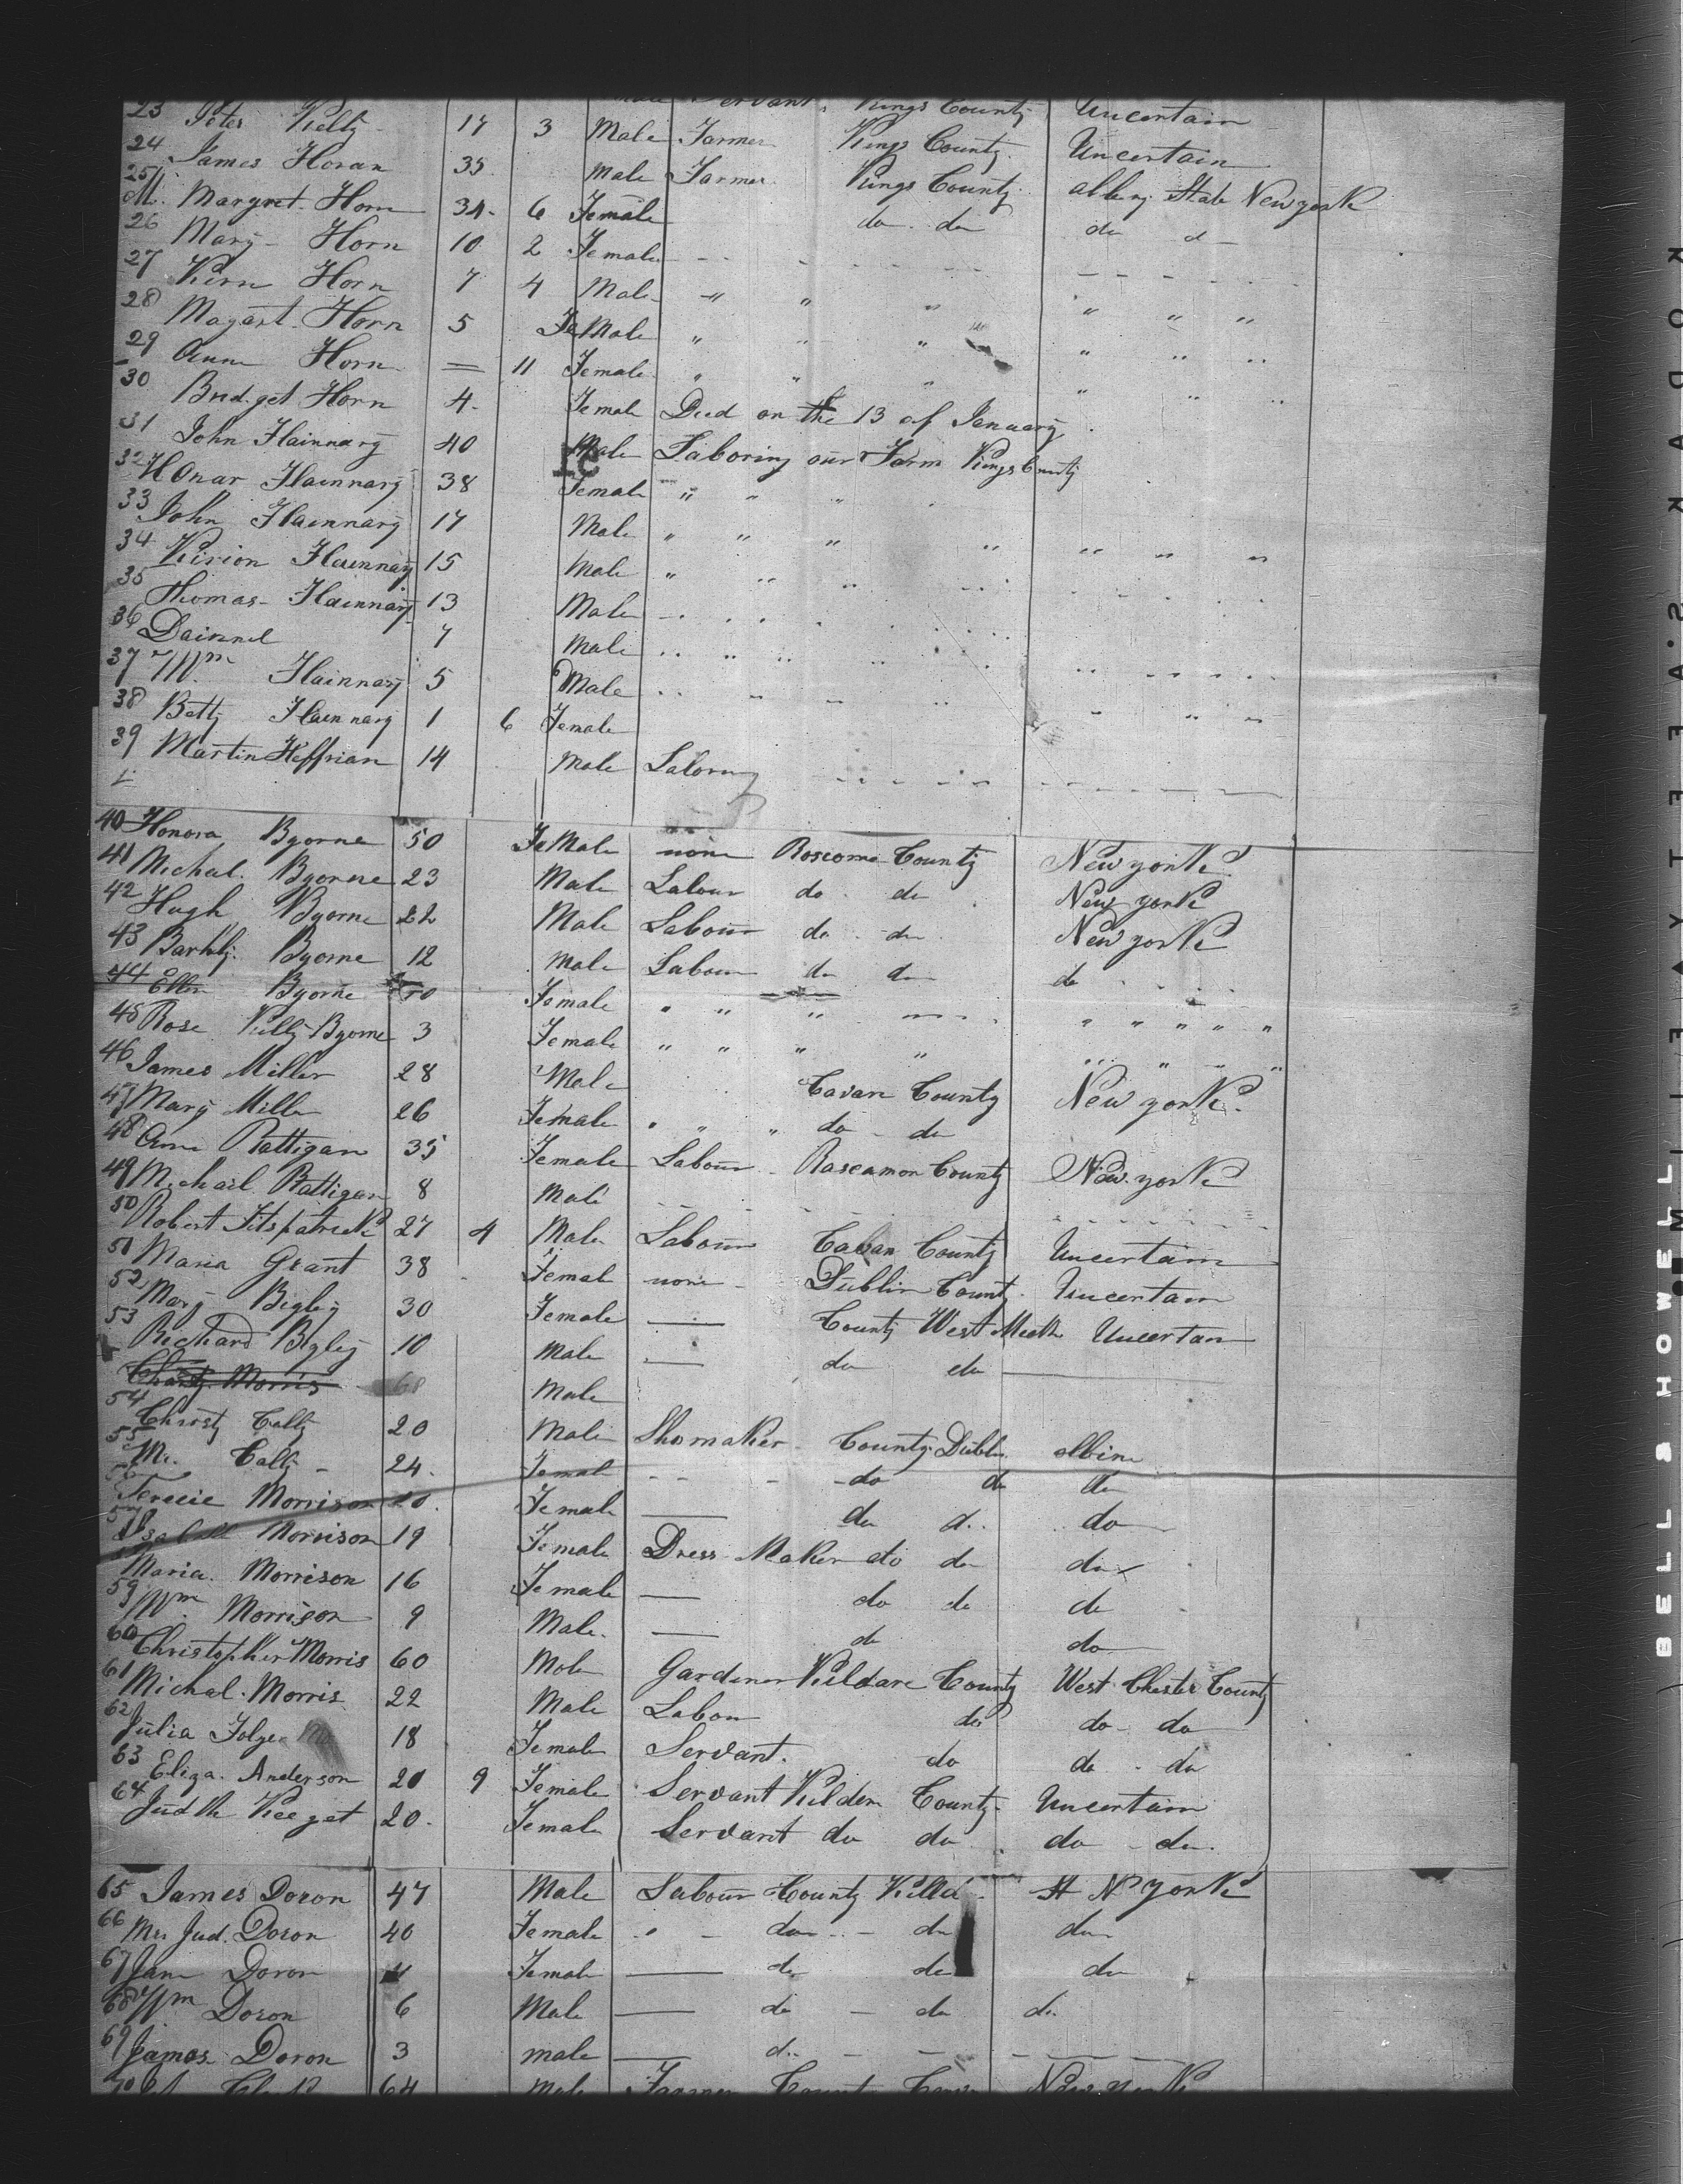 23 Servant Kings County Uncertain
24 Peter Kelly 17 3 Male Farmer Kings County Uncertain
25 James Horan 35 Male Farmer Kings County State New york
M. Margret Horn 34 6 Female do do do
26 Mary Horn 10 2 Female
27 Kirn Horn 7 4 Male " " " " " "
28 Horn 5 FeMale " " " " " "
29 Ann Horn 11 Female " " " " "
30 Bridget Horn 4 Female Died on the 13 of January
31 John Hainnary 40 Male Laboring our Farm Kings County
32 Honar Hainnary 38 Female " " "
33 John Hainnary 17 Male " " " " " " "
34 Kirion Hainnary 15 Male " " "
35 Thomas Hainnary 13 Male
36 Dainnel 7 Male " " "
37 Wm Hainnary 5 Male " "
38 Betty Hainnary 1 6 Female
39 Martin Heffrian 14 Male Laboring
40 Honora Byorne 50 FeMale none County New york
41 Michal Byorne 23 Male Labour do do New york
42 Hugh Byorne 22 Male Labour do do New york
43 Byorne 12 Male Labour do do do
44 Ellen Byorne Female " " "
45 Rose Byorne 3 Female " " " "
46 James Miller 28 Male Cavan County New york
47 Mary Miller 26 Female " " " do do
48 Ann Rattigan 35 Female Labour Roscamon County New york
49 Michail Rattigan 8 Male
50 Robert Fitspatrick 27 4 Male Labour Cavan County Uncertain
51 Maria Grant 38 Female none Dublin County Uncertain
52 Mary Bigley 30 Female County West Meeth Uncertan
53 Richard Bigley 10 Male do do
Christy Morris 68 Male
54 Christy Cally 20 Male Shomaker County Dublin
55 Cally 24 Female do do do
56 Morrison 20 Female do do do
57 Morrison 19 Female Dress Maker do do do
Maria Morrison 16 Female do do do
59 Wm Morrison 9 Male do do
60 Christopher Morris 60 Male Gardiner Kildare County West Chester County
61 Michal Morris 22 Male Labour do do do
62 Julia 18 Female Servant do do do
63 Eliza Anderson 20 9 Female Servant Kilder County Uncertain
64 Judth 20 Female Servant do do do do
65 James Doron 47 Male Labour County St N york
66 Mrs Jud. Doron 40 Female do do do
67 Jane Doron Female do do do
68 Wm Doron 6 Male do do do
69 James Doron 3 male do
70 64 Male Farmer County New york
BELL & HOWELL